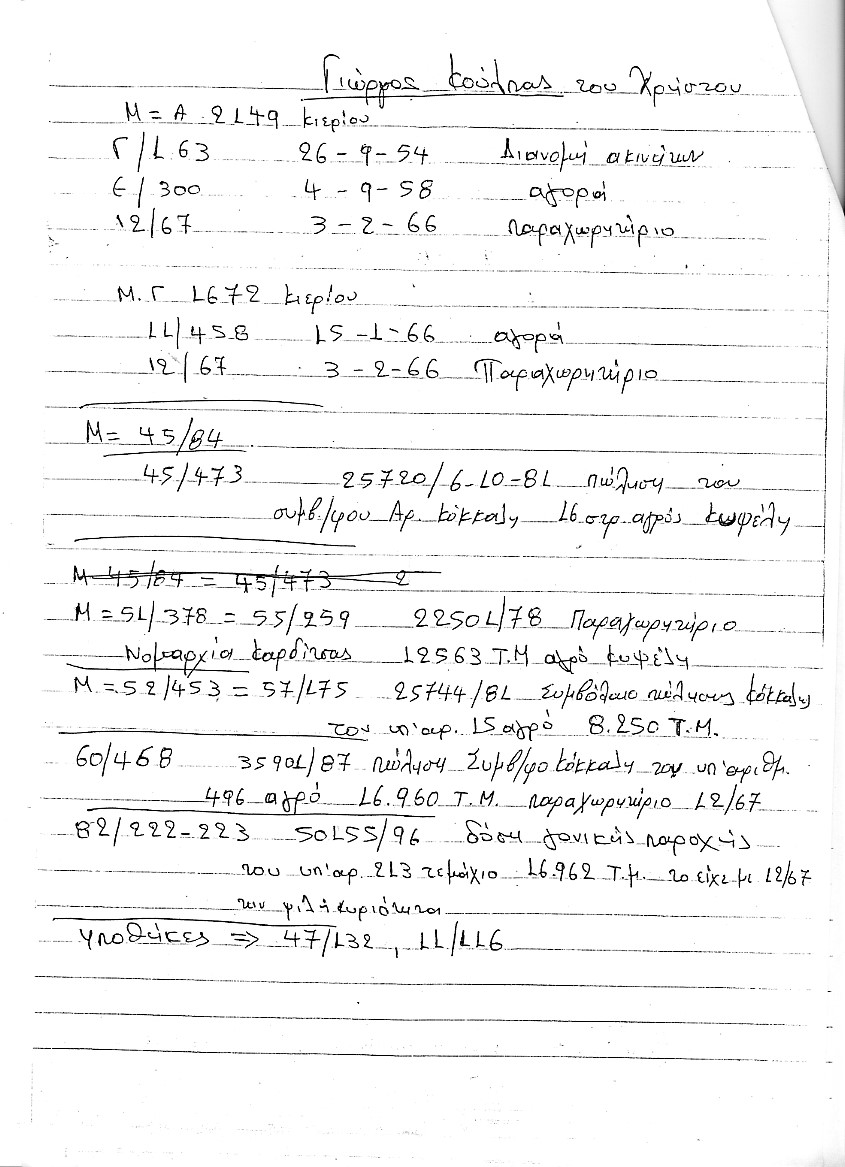 Γιώργος Κούλπας του Χρήστου
Μ = Α 2149 Κιερίου
Γ/163 26-9-54 Διανομή ακινήτων
Ε/300 4-9-58 αγορά
12/67 3-2-66 παραχωρητήριο
Μ.Γ 1672 Κιερίου
11/458 15-1-66 αγορά
12/67 3-2-66 Παραχωρητήριο
Μ = 45/84
45/473 25720/6-10-81 πώληση του
συμβ/φου Αρ. Κόκκαλη 16 στρ. αγρός Κυψέλη
Μ 45/84 = 45/473 2
Μ = 51/378 = 55/259 22501/78 Παραχωρητήριο
Νομαρχία Καρδίτσας 12563 Τ.Μ αγρό Κυψέλη
Μ = 52/453 = 57/175 25744/81 Συμβόλαιο πώλησης Κόκκαλη
του υπ'αρ. 15 αγρό 8.250 Τ.Μ.
60/468 35901/87 πώληση Συμβ/φο Κόκκαλη του υπ'αριθμ.
496 αγρό 16.960 Τ.Μ. παραχωρητήριο 12/67
82/222-223 50155/96 δόση γονικής παροχής
του υπ'αρ. 213 τεμάχιο 16.962 Τ.μ. το είχε με 12/67
την ψιλή κυριότητα
Υποθήκες => 47/132, 11/116